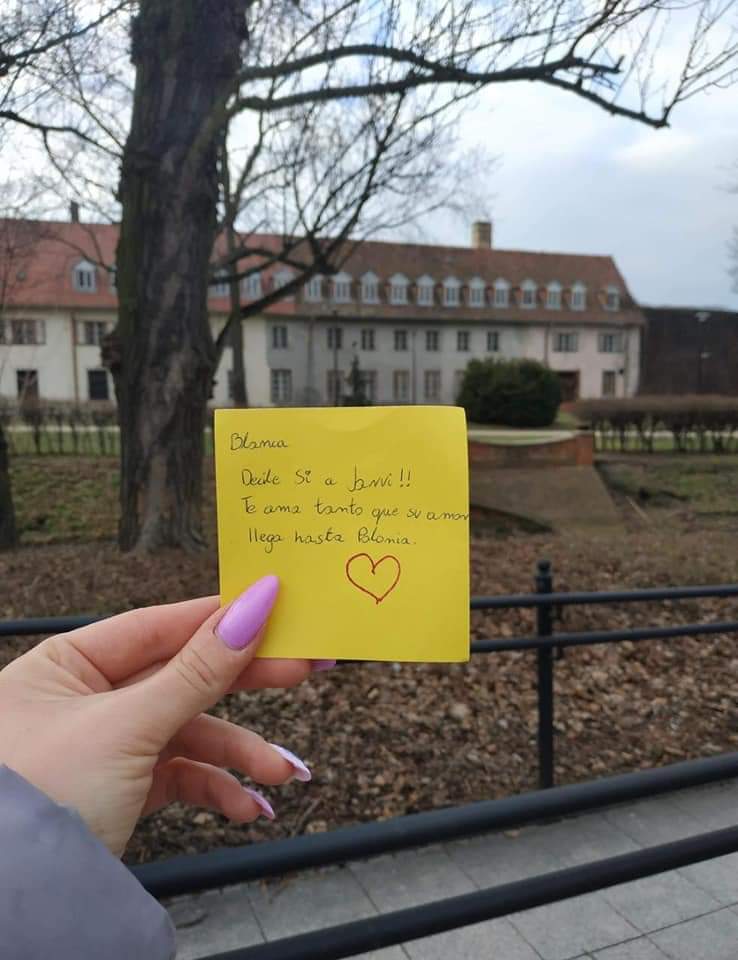 Blanca
Decile Si a Javvi!!
Te ama tanto que su amor
llega hasta Polonia.